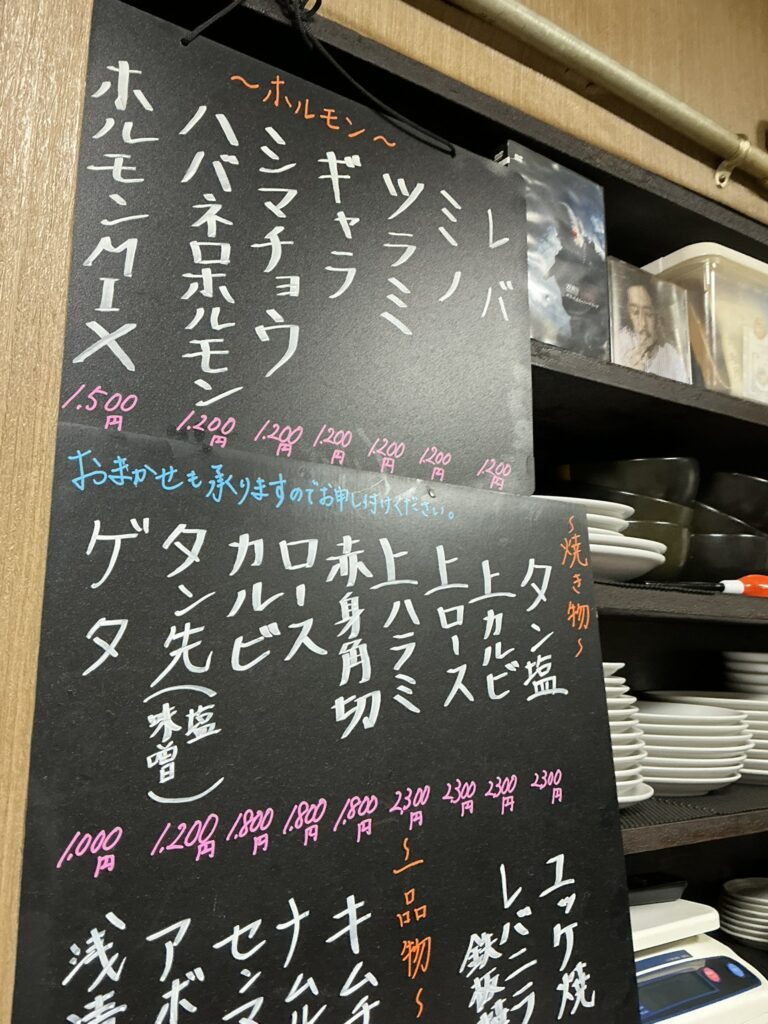 ～ホルモン～
レバ
1.200円
ミノ
1.200円
ツラミ
1.200円
ギャラ
1.200円
シマチョウ
1.200円
ハバネロホルモン
1.200円
ホルモンMIX
1.500円
おまかせも承りますのでお申し付けください。
～焼き物～
タン塩
2.300円
上カルビ
2.300円
上ロース
2.300円
上ハラミ
2.300円
赤身角切
1.800円
ロース
1.800円
カルビ
1.800円
タン先(塩味噌)
1.200円
ゲタ
1.000円
ユッケ焼
レバニラ
鉄板
～一品物～
キムチ
ナムル
センマ
アボ
浅漬